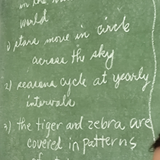 in the
world
1) stars move in circle
across the sky
2) seasons cycle at yearly
intervals
3) the tiger and zebra are
covered in patterns
of